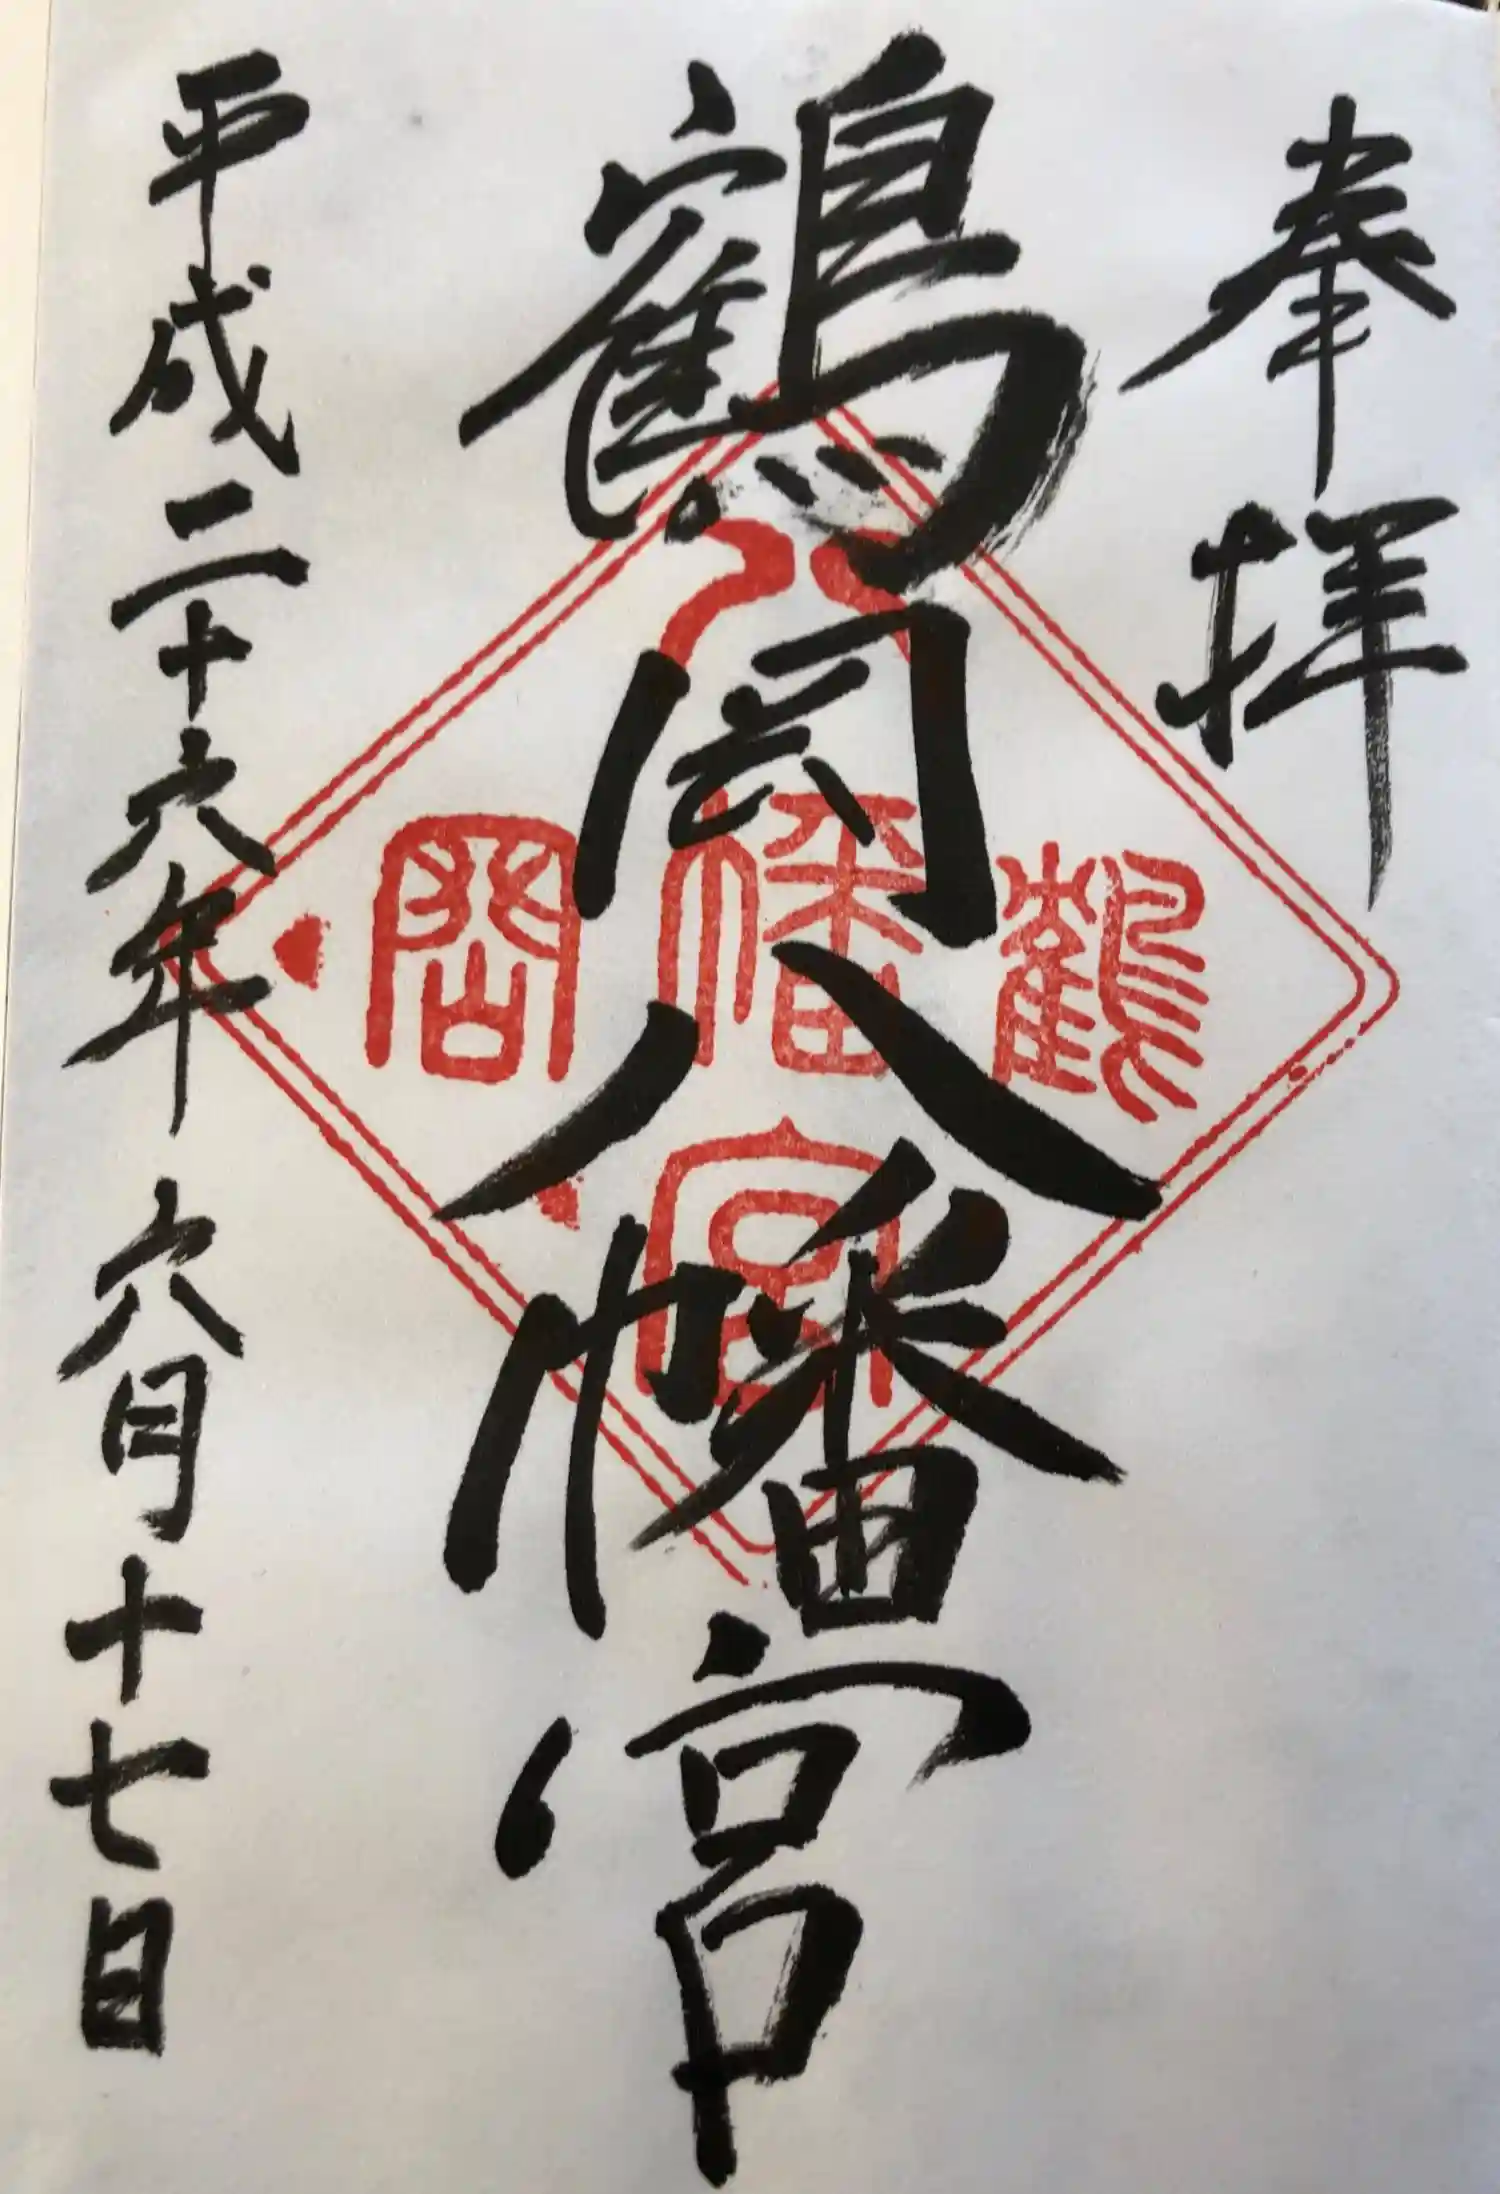 奉拝
鶴岡八幡宮
平成二十六年六月十七日
鶴
八幡宮
岡